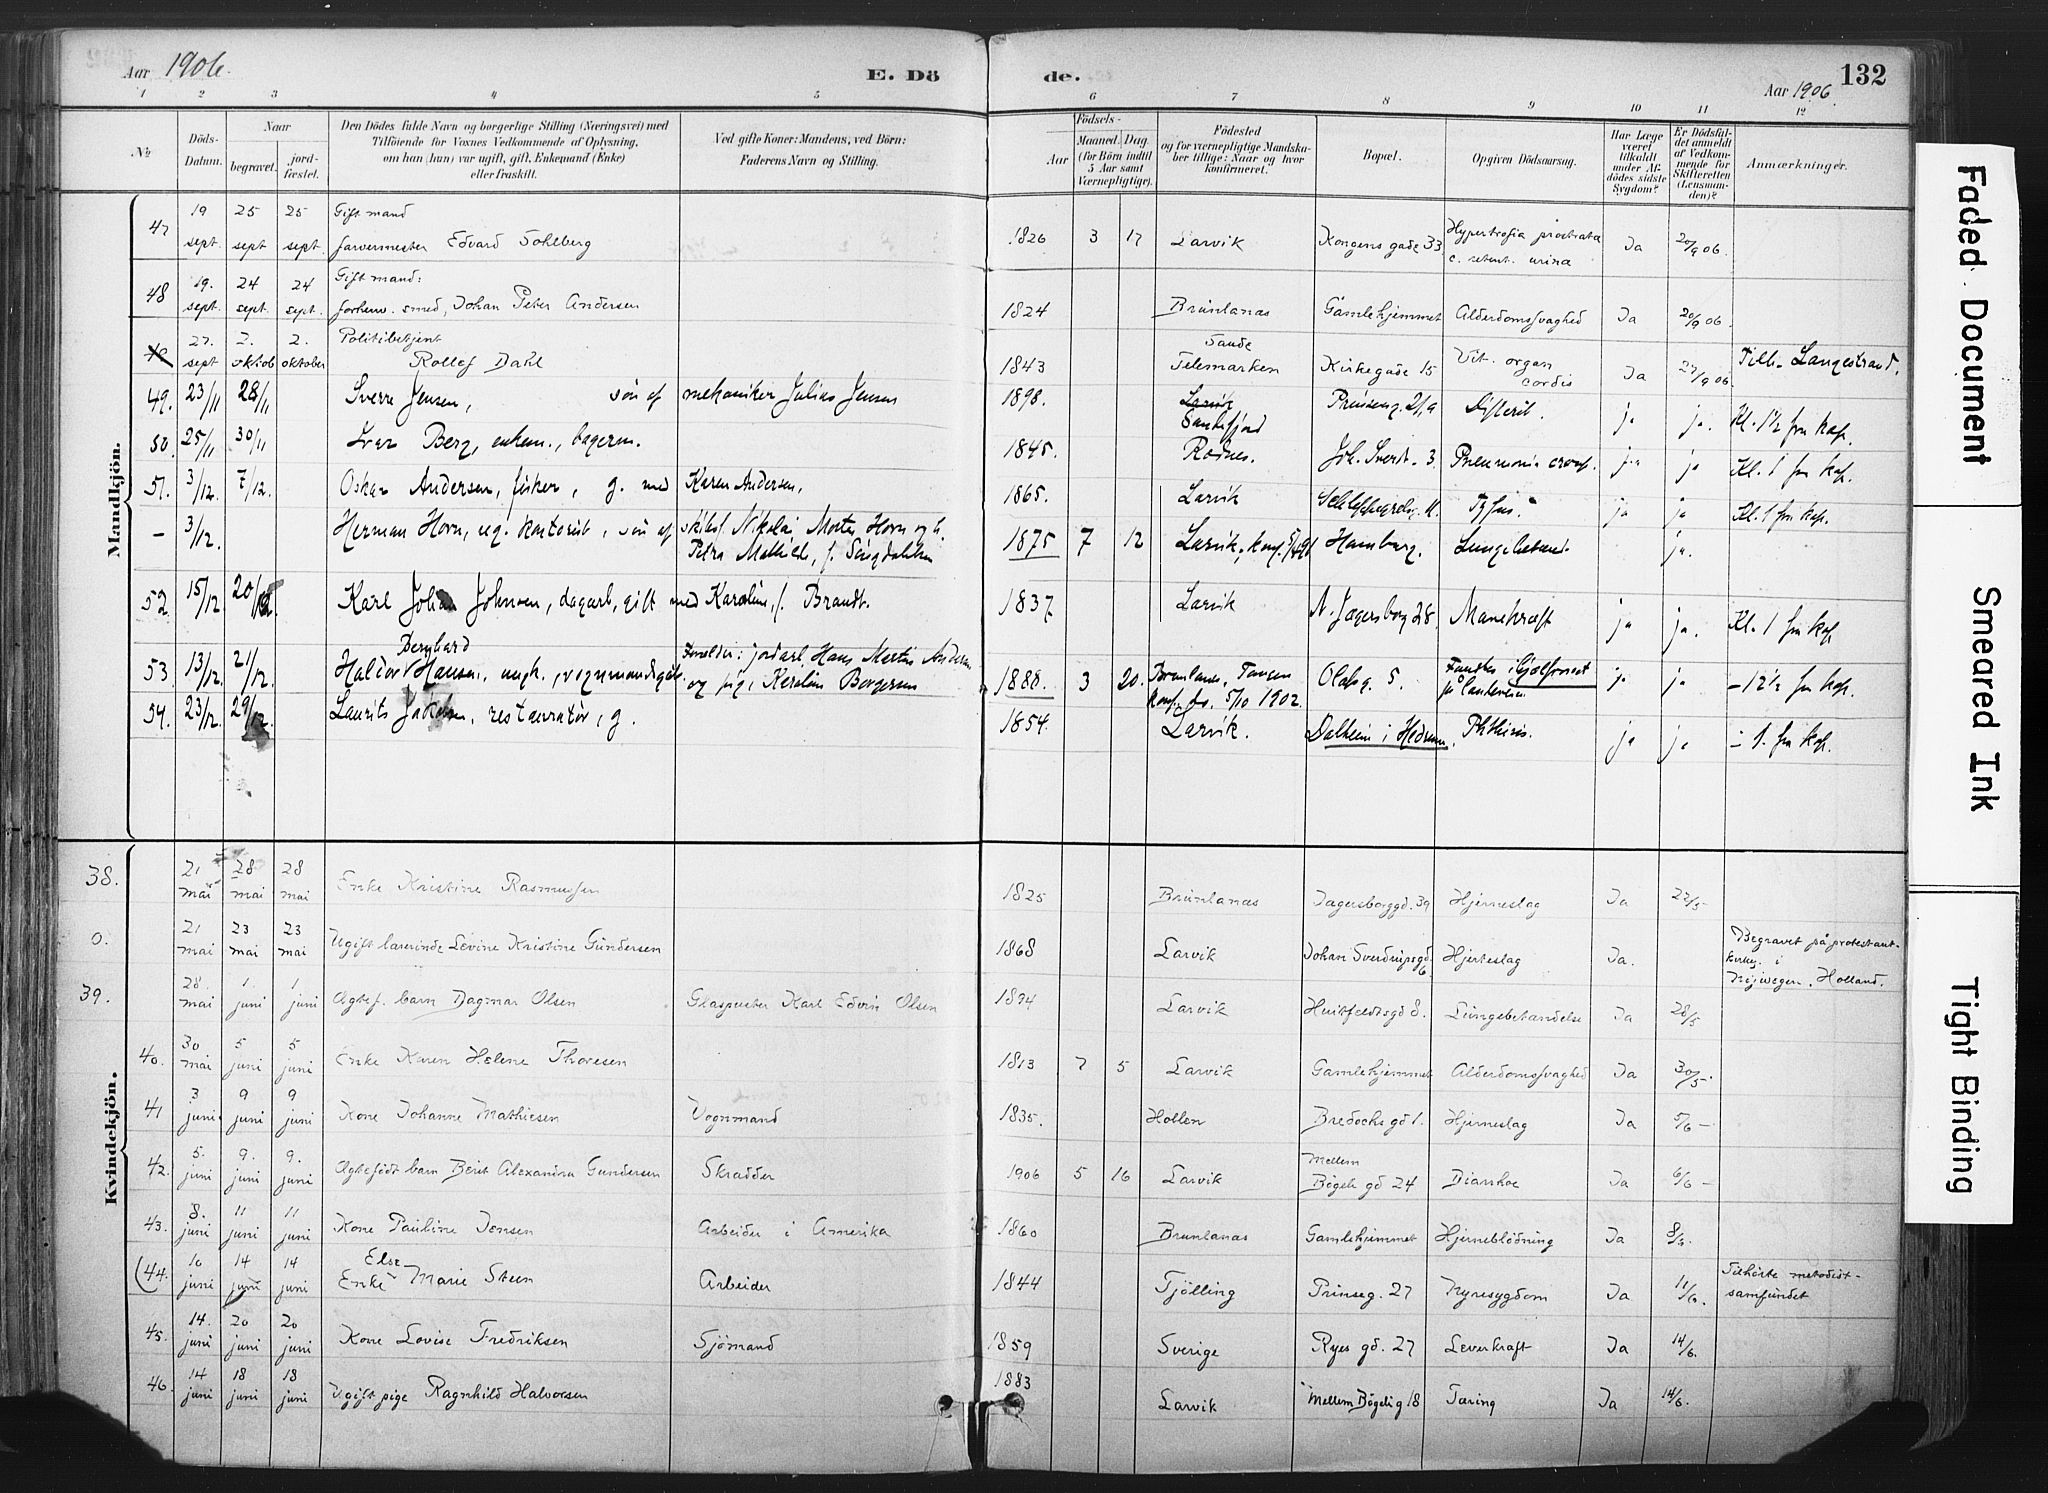 Aar 1906.
E. Dö
de.
Aar 1906.
132
1 2 3 4 5 6 7 8 9 10 11 12
№
Döds-
Datum.
Naar
begravet.
jord-
fæstet.
Den Dödes fulde Navn og borgerlige Stilling (Næringsvei) med
Tilföiende for Voxnes Vedkommende af Oplysning,
om han (hun) var ugift, gift, Enkemand (Enke)
eller fraskilt.
Ved gifte Koner: Mandens, ved Börn:
Faderens Navn og Stilling.
Födsels-
Aar
Maaned.
Dag
(for Börn indtil
5 Aar samt
Værnepligtige).
Födested
og for værnepligtige Mandska-
ber tillige: Naar og hvor
konfirmeret.
Bopæl.
Opgiven Dödsaarsag.
Har Læge
været
tilkaldt
under Af-
dödes sidste
Sygdom?
Er Dödsfal-
det anmeldt
af Vedkom-
mende for
Skifteretten
(Lensman-
den)?
Anmærkninger.
Mandkjön.
47 19 sept. 25 sept 25 sept. Gift mand
farvermester Edvard Sohlberg 1826 3 17 Larvik Kongens gade 33 Hypertrofia prostata
c. retent. urina Ja 20/9 06.
48 19. sept. 24 sept. 24 sept. Gift mand:
forhenv. smed, Johan Peter Andersen 1824 Brunlanas Gamlehjemmet Alderdomssvaghed Ja 20/9 06
27. sept 2. oktob 2. oktober Politibetjent
Rollef Dahl 1843 Sande
Telemarken Kirkegade 15 Vit. organ
cordis Ja 27/9 06. Till. Langestrand.
49. 23/11 28/11 Sverre Jensen, sön af mekaniker Julius Jensen 1898. Larvik
Sandefjord Prinseng. 21a Difterit. ja ja. Kl. 1½ fra kap.
50. 25/11 30/11 Ivar Berg, enkem., bagerm. 1845. Rødnes. Joh. Sverdr. 3 Pneumonia croup. ja ja Kl. 1 fra kap.
51. 3/12. 7/12. Oskar Andersen, fisker, g. med Karen Andersen, 1865. Larvik Tyfus. ja ja Kl. 1 fra kap.
– 3/12. Herman Horn, ug. kontorist, sön af skibsf. Nikolai Morten Horn og h.
Petra Mathilde, f. Singdahlsen 1875 7 12 Larvik, konf. Hamburg. Lungebetænd. ja.
52. 15/12 20/12. Karl Johan Johnsen, dagarb, gift med Karoline, f. Brandt. 1837 Larvik N. Jegersborg 28. Mavekræft ja ja. Kl. 1 fra kap
53. 13/12. 21/12. Bernhard
Haldor Hansen, ungk., vognmandsgut. Forælder: jordarb. Hans Martin Andersen
og pige, Karoline Borgersen 1888. 3 20. Brunlanes, Tangen
konf. ds. 5/10 1902. Olafsg. 5. Fundet i Gjelfosset
på landeveien ja ja – 12½ fra kap.
54. 23/12. 29/12. Laurits Jakobsen, restauratör, g. 1854. Larvik. Dalheim i Hedrum. Phthisis. ja ja – 1. fra kap.
Kvindekjön.
38. 21 mai 28 mai 28 mai Enke Kristine Rasmussen 1825 Brunlanas Jagersborggd. 39 Hjerneslag Ja 22/5 –
0. 21 mai 23 mai 23 mai Ugift lærerinde Levine Kristine Gundersen 1868 Larvik Johan Sverdrupsgd.
6 Hjerteslag Ja. Begravet på protestant-
kirkeg. i
Nijwegen, Holland.
39. 28. mai 1. juni 1. juni Ægtef. barn Dagmar Olsen Glaspuster Karl Edvin Olsen 1894 Larvik Huitfeldtsgd 8. Lungebetændelse Ja 28/5
40. 30 mai 5 juni 5 juni Enke Karen Helene Thoresen 1813 7 5 Larvik Gamlehjemmet Alderdomssvaghed Ja 30/5 –
41 3 juni. 9 juni 9 juni Kone Johanne Mathiesen Vognmand 1835. Hollen Bredochs gd 1. Hjerneslag Ja 5/6 –
42. 5. juni 9. juni 9. juni Ægtefödt barn Berit Alexandra Gundersen Skrædder 1906 5 16 Larvik Mellem
Bögeli gd 24 Diarrhoe Ja 6/6 –
43. 8. juni 11 juni 11 juni Kone Pauline Jensen Arbeider i Amerika 1860 Brunlanas Gamlehjemmet Hjerneblödning Ja 8/6.
(44. 10 juni 14 juni 14 juni Else
Enke Marie Steen Arbeider 1844 Tjölling Prinseg. 27 Nyresygdom Ja 11/6. Tilhörte metodist-
samfundet
45. 14. juni 20 juni 20 juni Kone Lovise Fredriksen Sjömand 1859 Sverige Ryes gd. 27 Leverkraft Ja 14/6.
46. 14 juni 18 juni 18 juni Ugift pige Ragnhild Halvorsen 1883 Larvik Mellem Bögelig 18 Tæring Ja 14/6.
Faded Document
Smeared Ink
Tight Binding